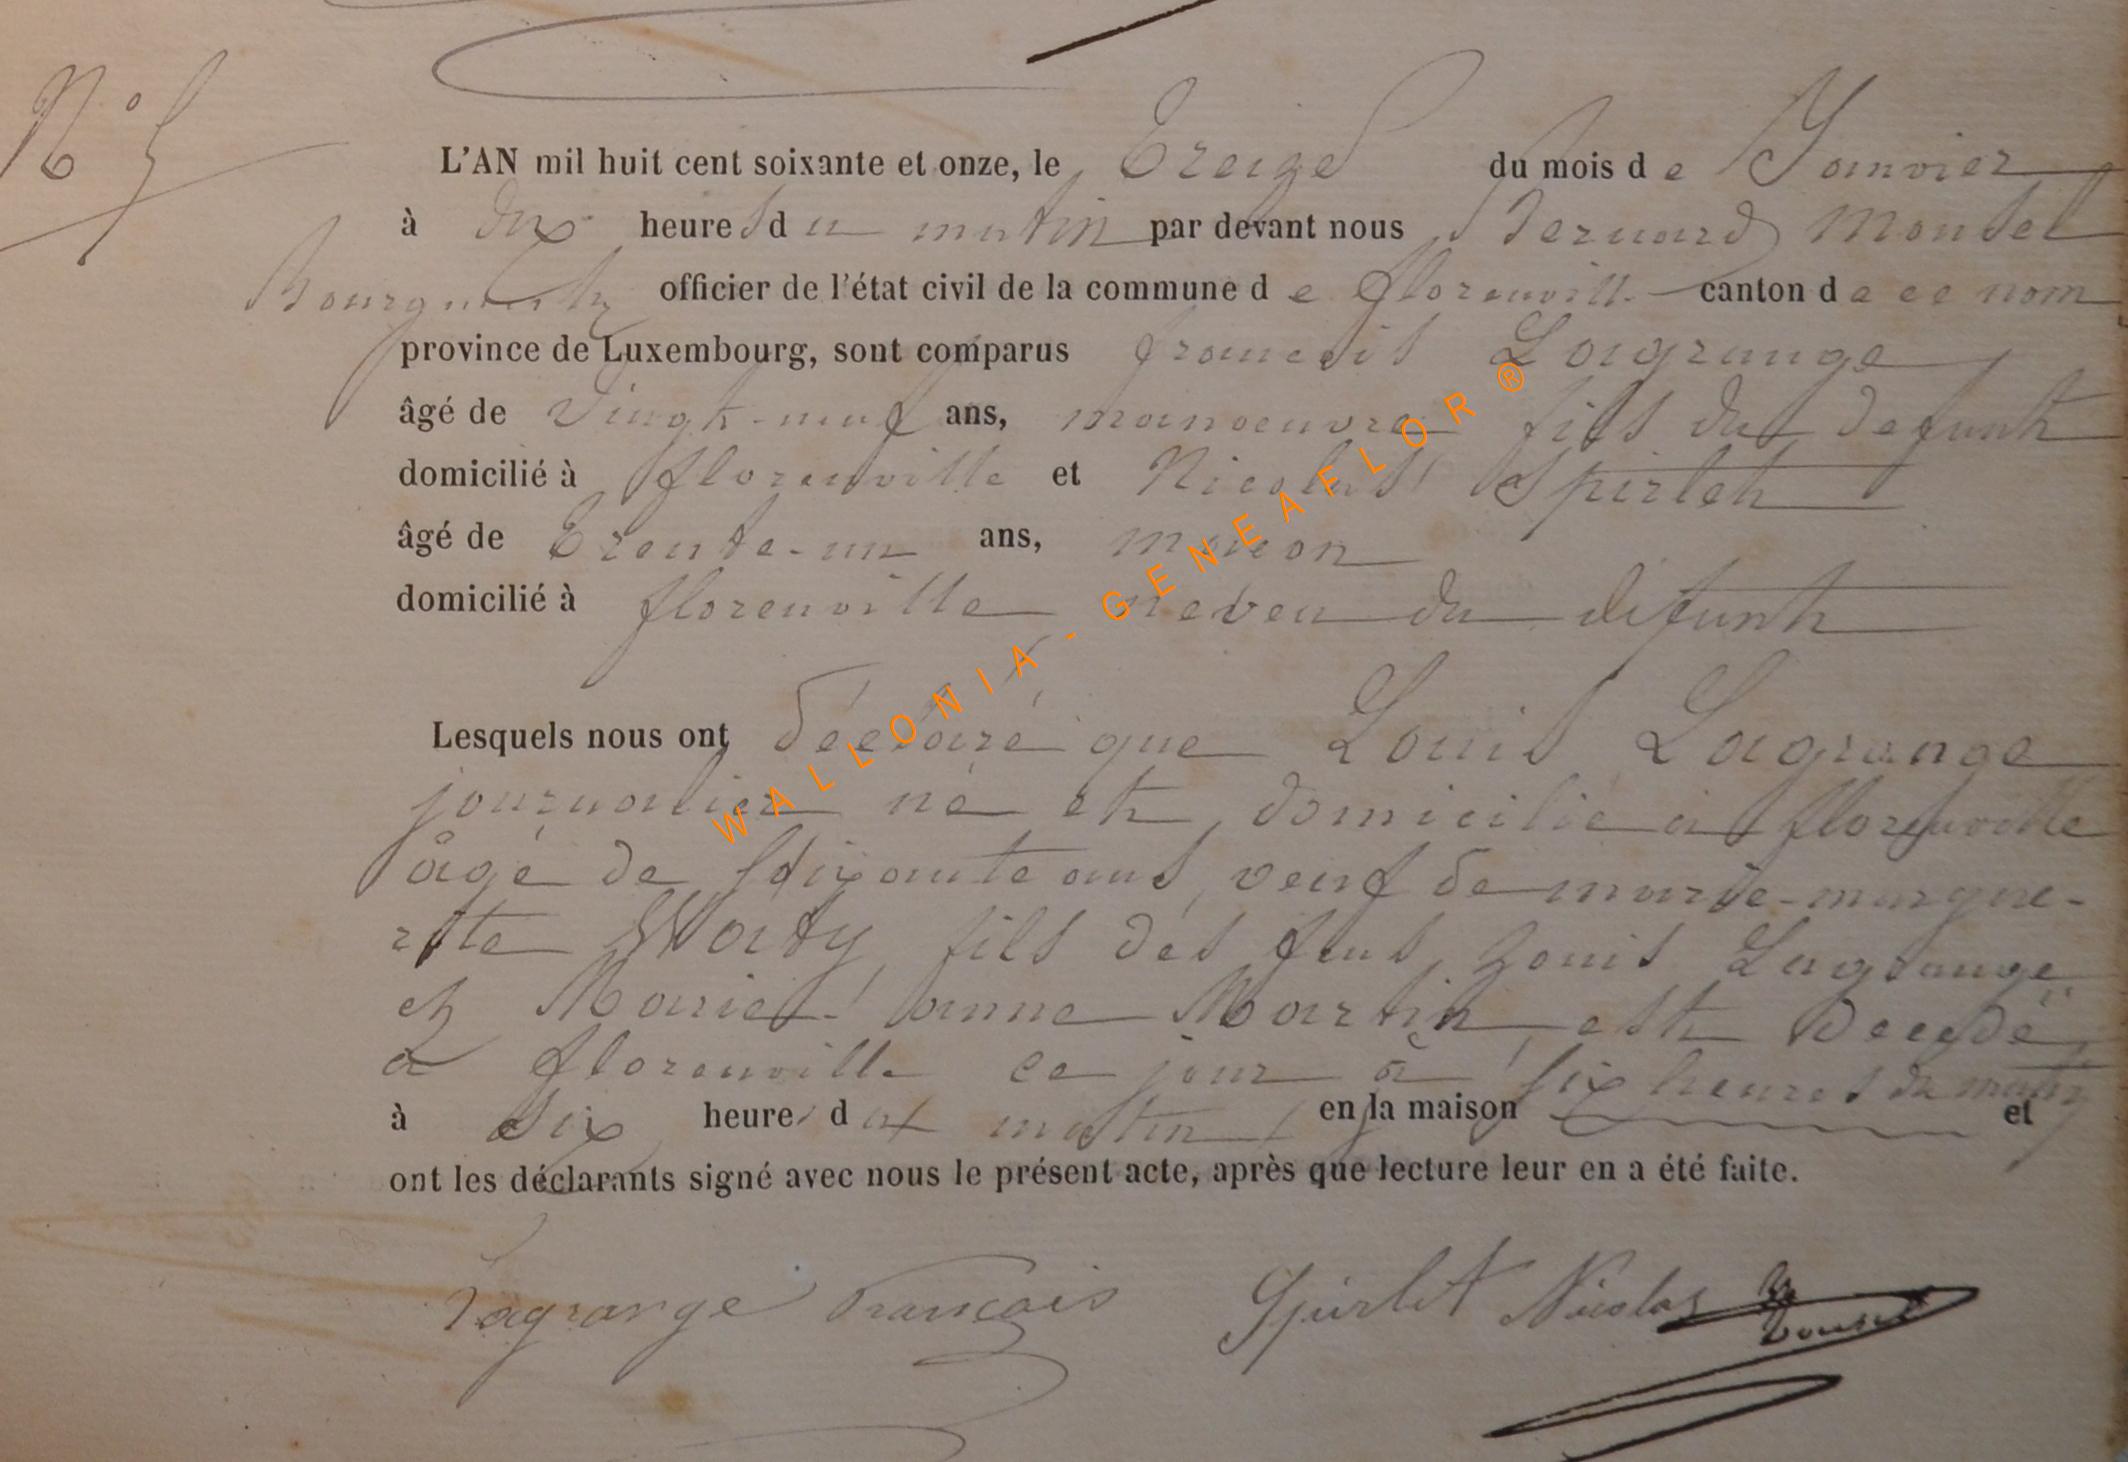 N° 5
L'AN mil huit cent soixante et onze, le Treize du mois de Janvier
à dix heures du matin par devant nous Bernard Monsel
Bourgmestre officier de l'état civil de la commune de florenville canton de ce nom
province de Luxembourg, sont comparus francois Lagrange
âgé de vingt-neuf ans, manoeuvre fils du defunt
domicilié à florenville et Nicolas Spirlet
âgé de Trente-un ans, macon
domicilié à florenville neveu du défunt
Lesquels nous ont déclaré que Louis Lagrange
journalier né et domicilié à florenville
âgé de soixante ans, veuf de marie-margue-
rite Waty, fils des feus Louis Lagrange
et Marie-Janne Martin, est décedé
a florenville ce jour à six heures du matin
à six heures du matin en la maison et
ont les déclarants signé avec nous le présent acte, après que lecture leur en a été faite.
Lagrange François Spirlet Nicolas B Monsel
WALLONIA-GENEAFLOR®